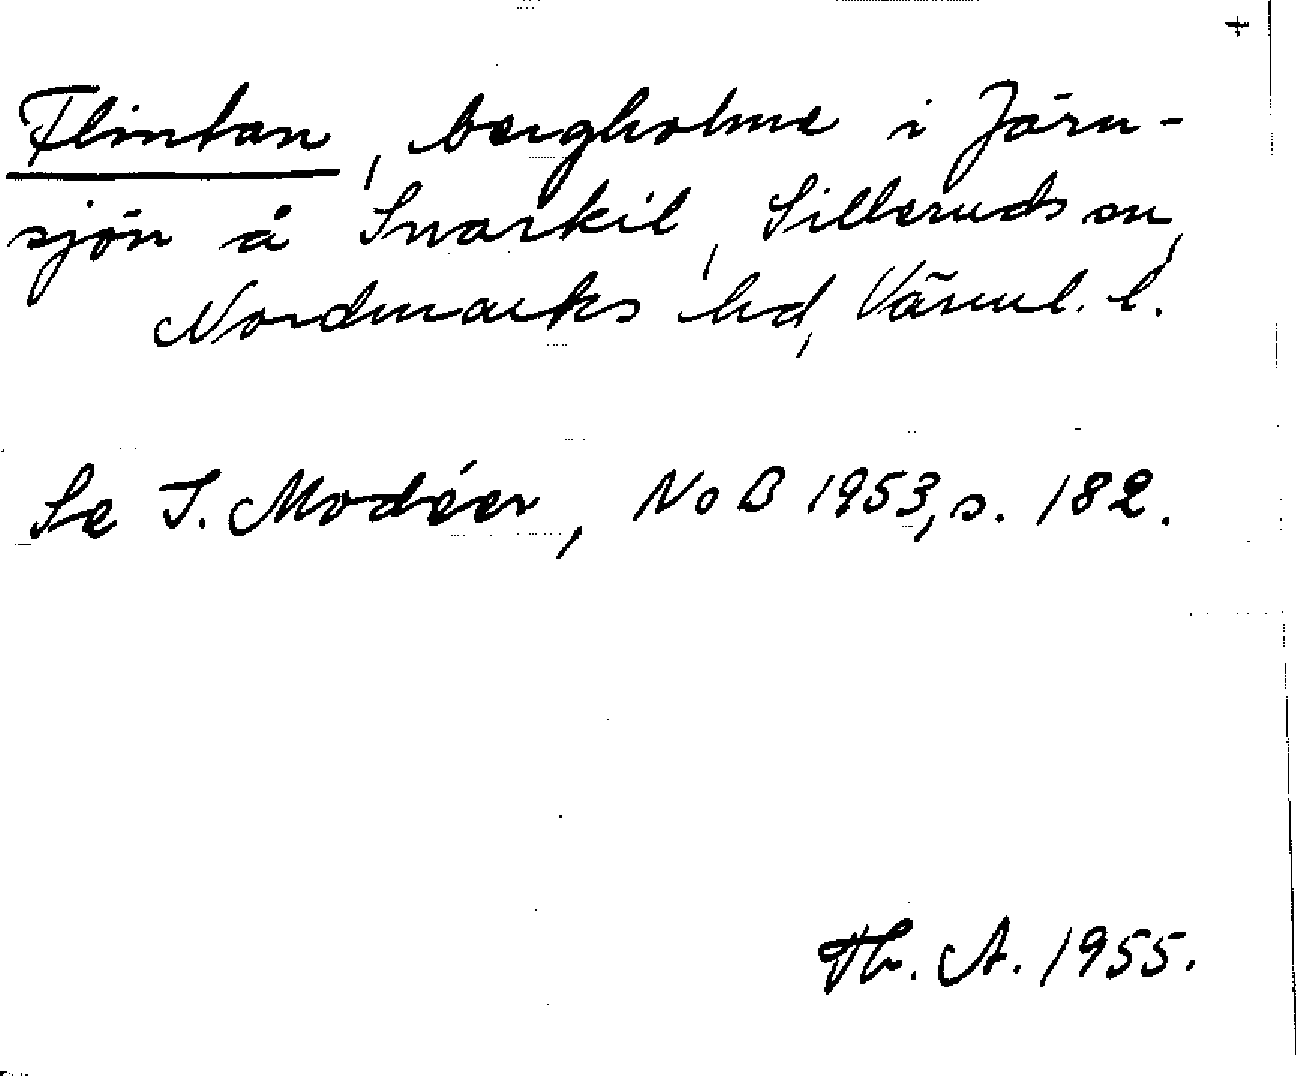 Flintan, bergholme i Järn-
sjön å Snarkil, Silleruds sn,
Nordmarks hd, Värml. l.
Se I. Modéer, NoB 1953, s. 182.
Th. A. 1955.